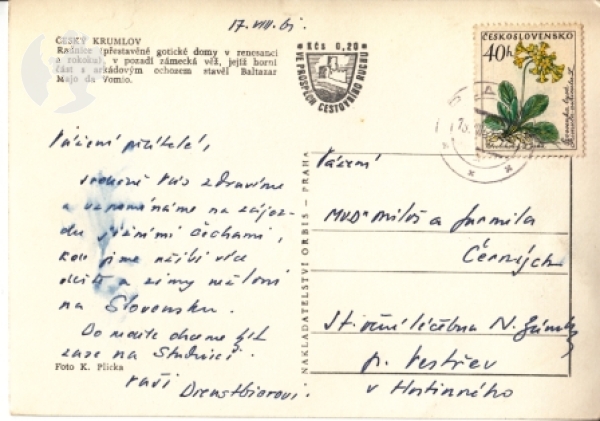 17. VIII. 61
ČESKÝ KRUMLOV
Radnice (přestavěné gotické domy v renesanci
a rokoku), v pozadí zámecká věž, jejíž horní
část s arkádovým ochozem stavěl Baltazar
Majo da Vomio.
Kčs 0,20
VE PROSPĚCH CESTOVNÍHO RUCHU
ČESKOSLOVENSKO
40h
Vážení přátelé,
srdečně Vás zdravíme
a vzpomínáme na zájezdu
jižními Čechami,
kde jsme
a zimy
na Slovensku.
Do neděle chceme být
zase na Studnici.
Vaši
Drenstbierovi.
Foto K. Plicka
NAKLADATELSTVÍ ORBIS - PRAHA
Vážení
MVDr Miloš a Jarmila
Černých
Státní léčebna N.
p. Vestřev
v Hostinného